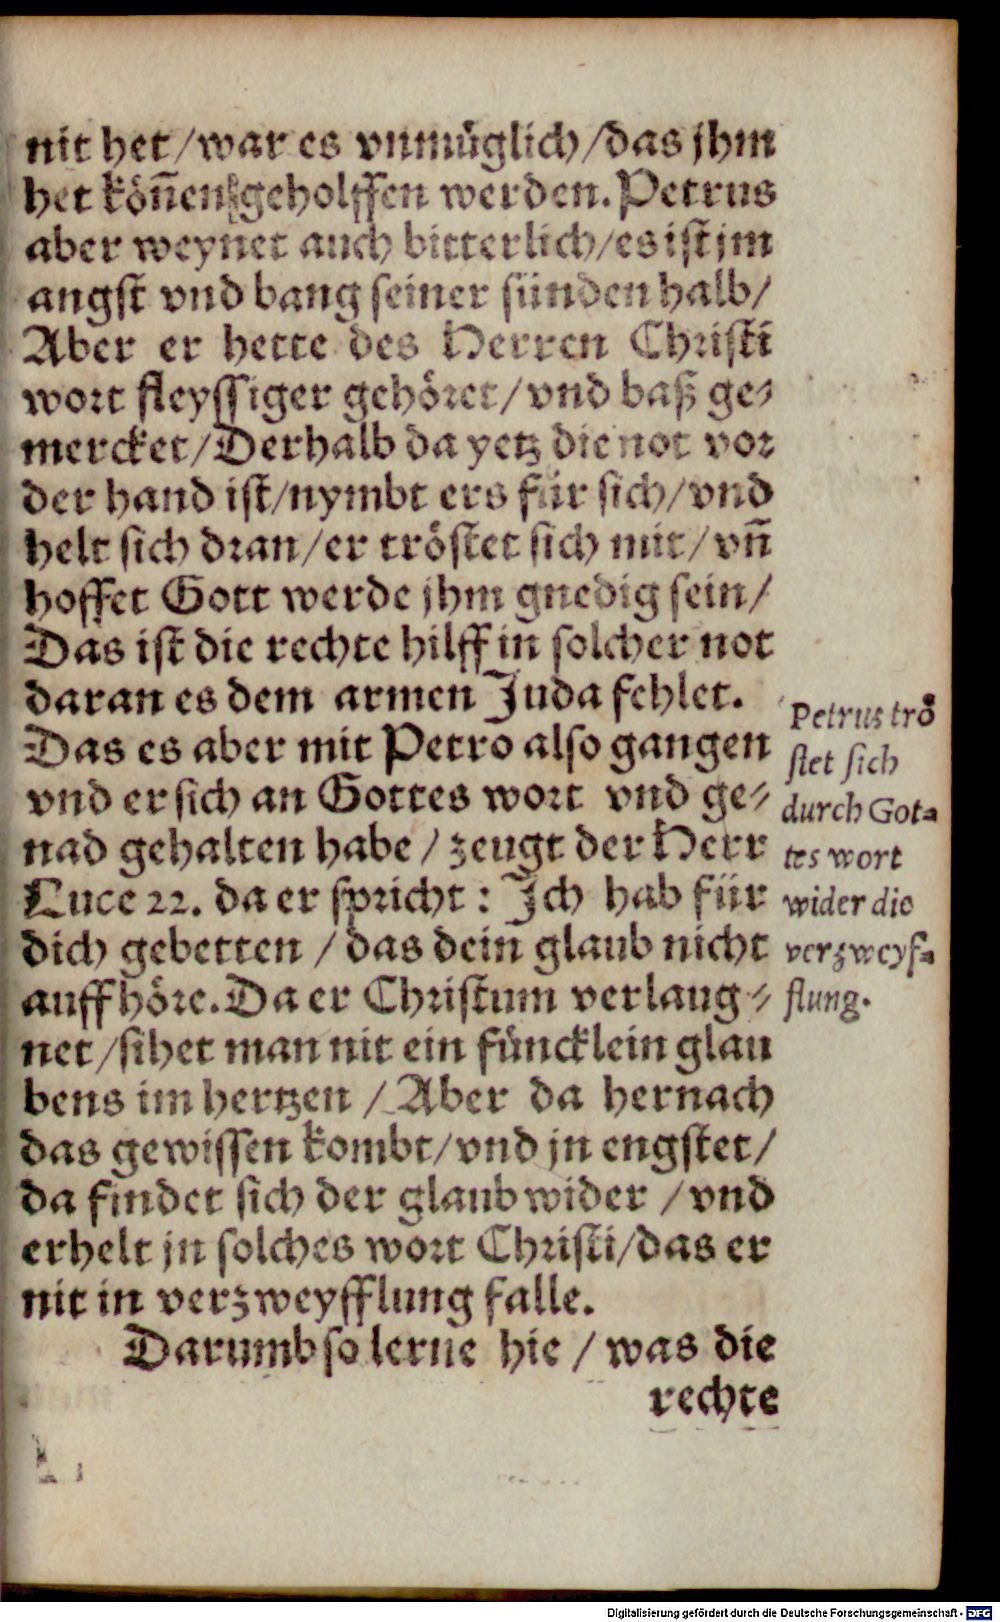 nit het / war es vnmüglich / das jhm
het köñen geholffen werden. Petrus
aber weynet auch bitterlich / es ist jm
angst vnd bang seiner sünden halb /
Aber er hette des Herren Christi
wort fleyssiger gehöret / vnd baß ge-
mercket / Derhalb da yetz die not vor
der hand ist / nymbt ers für sich / vnd
helt sich dran / er tröstet sich mit / vñ
hoffet Gott werde jhm gnedig sein /
Das ist die rechte hilff in solcher not
daran es dem armen Juda fehlet.
Das es aber mit Petro also gangen
vnd er sich an Gottes wort vnd ge-
nad gehalten habe / zeugt der Herr
Luce 22. da er spricht : Ich hab für
dich gebetten / das dein glaub nicht
auffhöre. Da er Christum verlaug-
net / sihet man nit ein füncklein glau
bens im hertzen / Aber da hernach
das gewissen kombt / vnd jn engstet /
da findet sich der glaub wider / vnd
erhelt jn solches wort Christi / das er
nit in verzweyfflung falle.
Darumb so lerne hie / was die
rechte
Petrus trö
stet sich
durch Got-
tes wort
wider die
verzweyf-
flung.
Digitalisierung gefördert durch die Deutsche Forschungsgemeinschaft - DFG